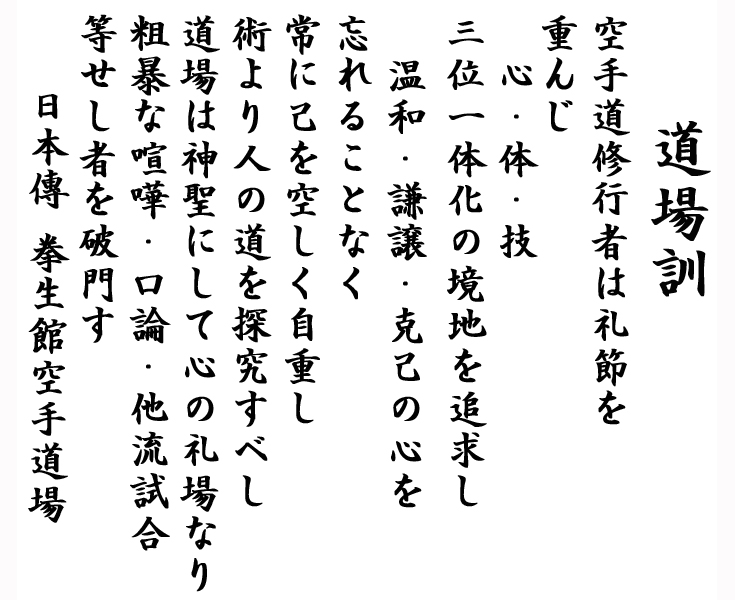 道場訓
空手道修行者は礼節を
重んじ
心・体・技
三位一体化の境地を追求し
温和・謙譲・克己の心を
忘れることなく
常に己を空しく自重し
術より人の道を探究すべし
道場は神聖にして心の礼場なり
粗暴な喧嘩・口論・他流試合
等せし者を破門す
日本傳 拳生館空手道場